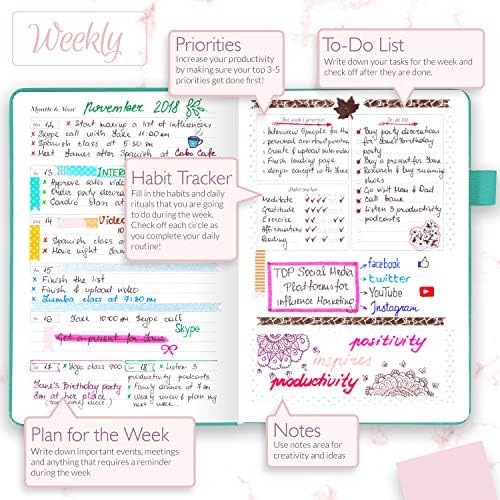 Weekly
Priorities
Increase your productivity
by making sure your top 3-5
priorities get done first!
To-Do List
Write down your tasks for the week and
check off after they are done.
Month & Year november 2018
Mon 12 x Start making a list of influencers
x Skype call with Jane 11:00 AM
x Spanish class at 5:30 PM
x Meet James after Spanish at Cabo Cafe
Tue 13 INTER
x Approve sales video
x Order party decorat
x Cardio class at
Wed 14 Video
x Spanish class
x Movie night
Thu 15
x Finish the list
x Finish & upload video
x Zumba class at 7:30 PM
Fri 16 Jane 10:00 AM Skype call
Skype
Get a present for Jane
Sat 17 x Yoga class 9:00
Jane's Birthday party
at her place
Sun 18 x Listen 3
productivity podcasts
x Family dinner at 7 PM
x Review & plan my
next week
Habit Tracker
Fill in the habits and daily
rituals that you are going
to do during the week.
Check off each circle as
you complete your daily
routine!
This week's priorities
Interview 3 people for the
personal assistant position
Create & upload sales video
Finish landing page
design concept with Jane
Habit tracker
Meditate
Gratitude
Exercise
Affirmations
Reading
To-do list
Buy party decorations
for Jane's Birthday
party
Buy a present for Jane
Research & buy running
shoes
Go visit Mom & Dad
Call bank
Listen 3 productivity
podcasts
TOP Social Media
Platforms for
Influence Marketing
facebook
twitter
YouTube
Instagram
positivity
inspires
productivity
Plan for the Week
Write down important events, meetings
and anything that requires a reminder
during the week
Notes
Use notes area for
creativity and ideas